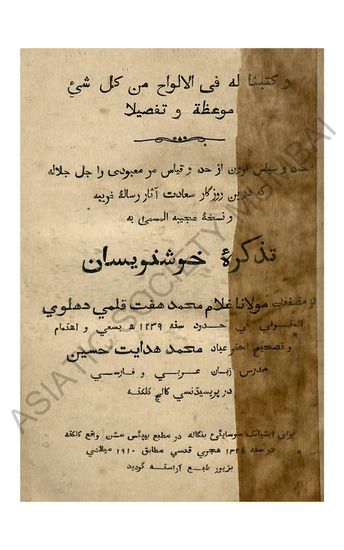 و كتبنا له في الالواح من كل شئ
موعظة و تفصيلا
حمد و سپاس فزون از حد و قياس مر معبودى را جل جلاله
كه درين روزگار سعادت آثار رسالهٔ غريبه
و نسخهٔ عجيبه المسمى به
تذكرهٔ خوشنويسان
از مصنفات مولانا غلام محمد هفت قلمي دهلوي
المتوفى في حدود سنه ١٢٣٩ ه بسعي و اهتمام
و تصحيح احقر عباد محمد هدايت حسين
مدرس زبان عربي و فارسي
در پريسيڈنسي كالج كلكته
براى ايشياٹك سوسايٹي بنگاله در مطبع بپٹس مشن واقع كلكته
در سنه ١٣٢٨ هجري قدسي مطابق ١٩١٠ ميلادي
بزيور طبع آراسته گرديد
ASIATIC SOCIETY MUMBAI